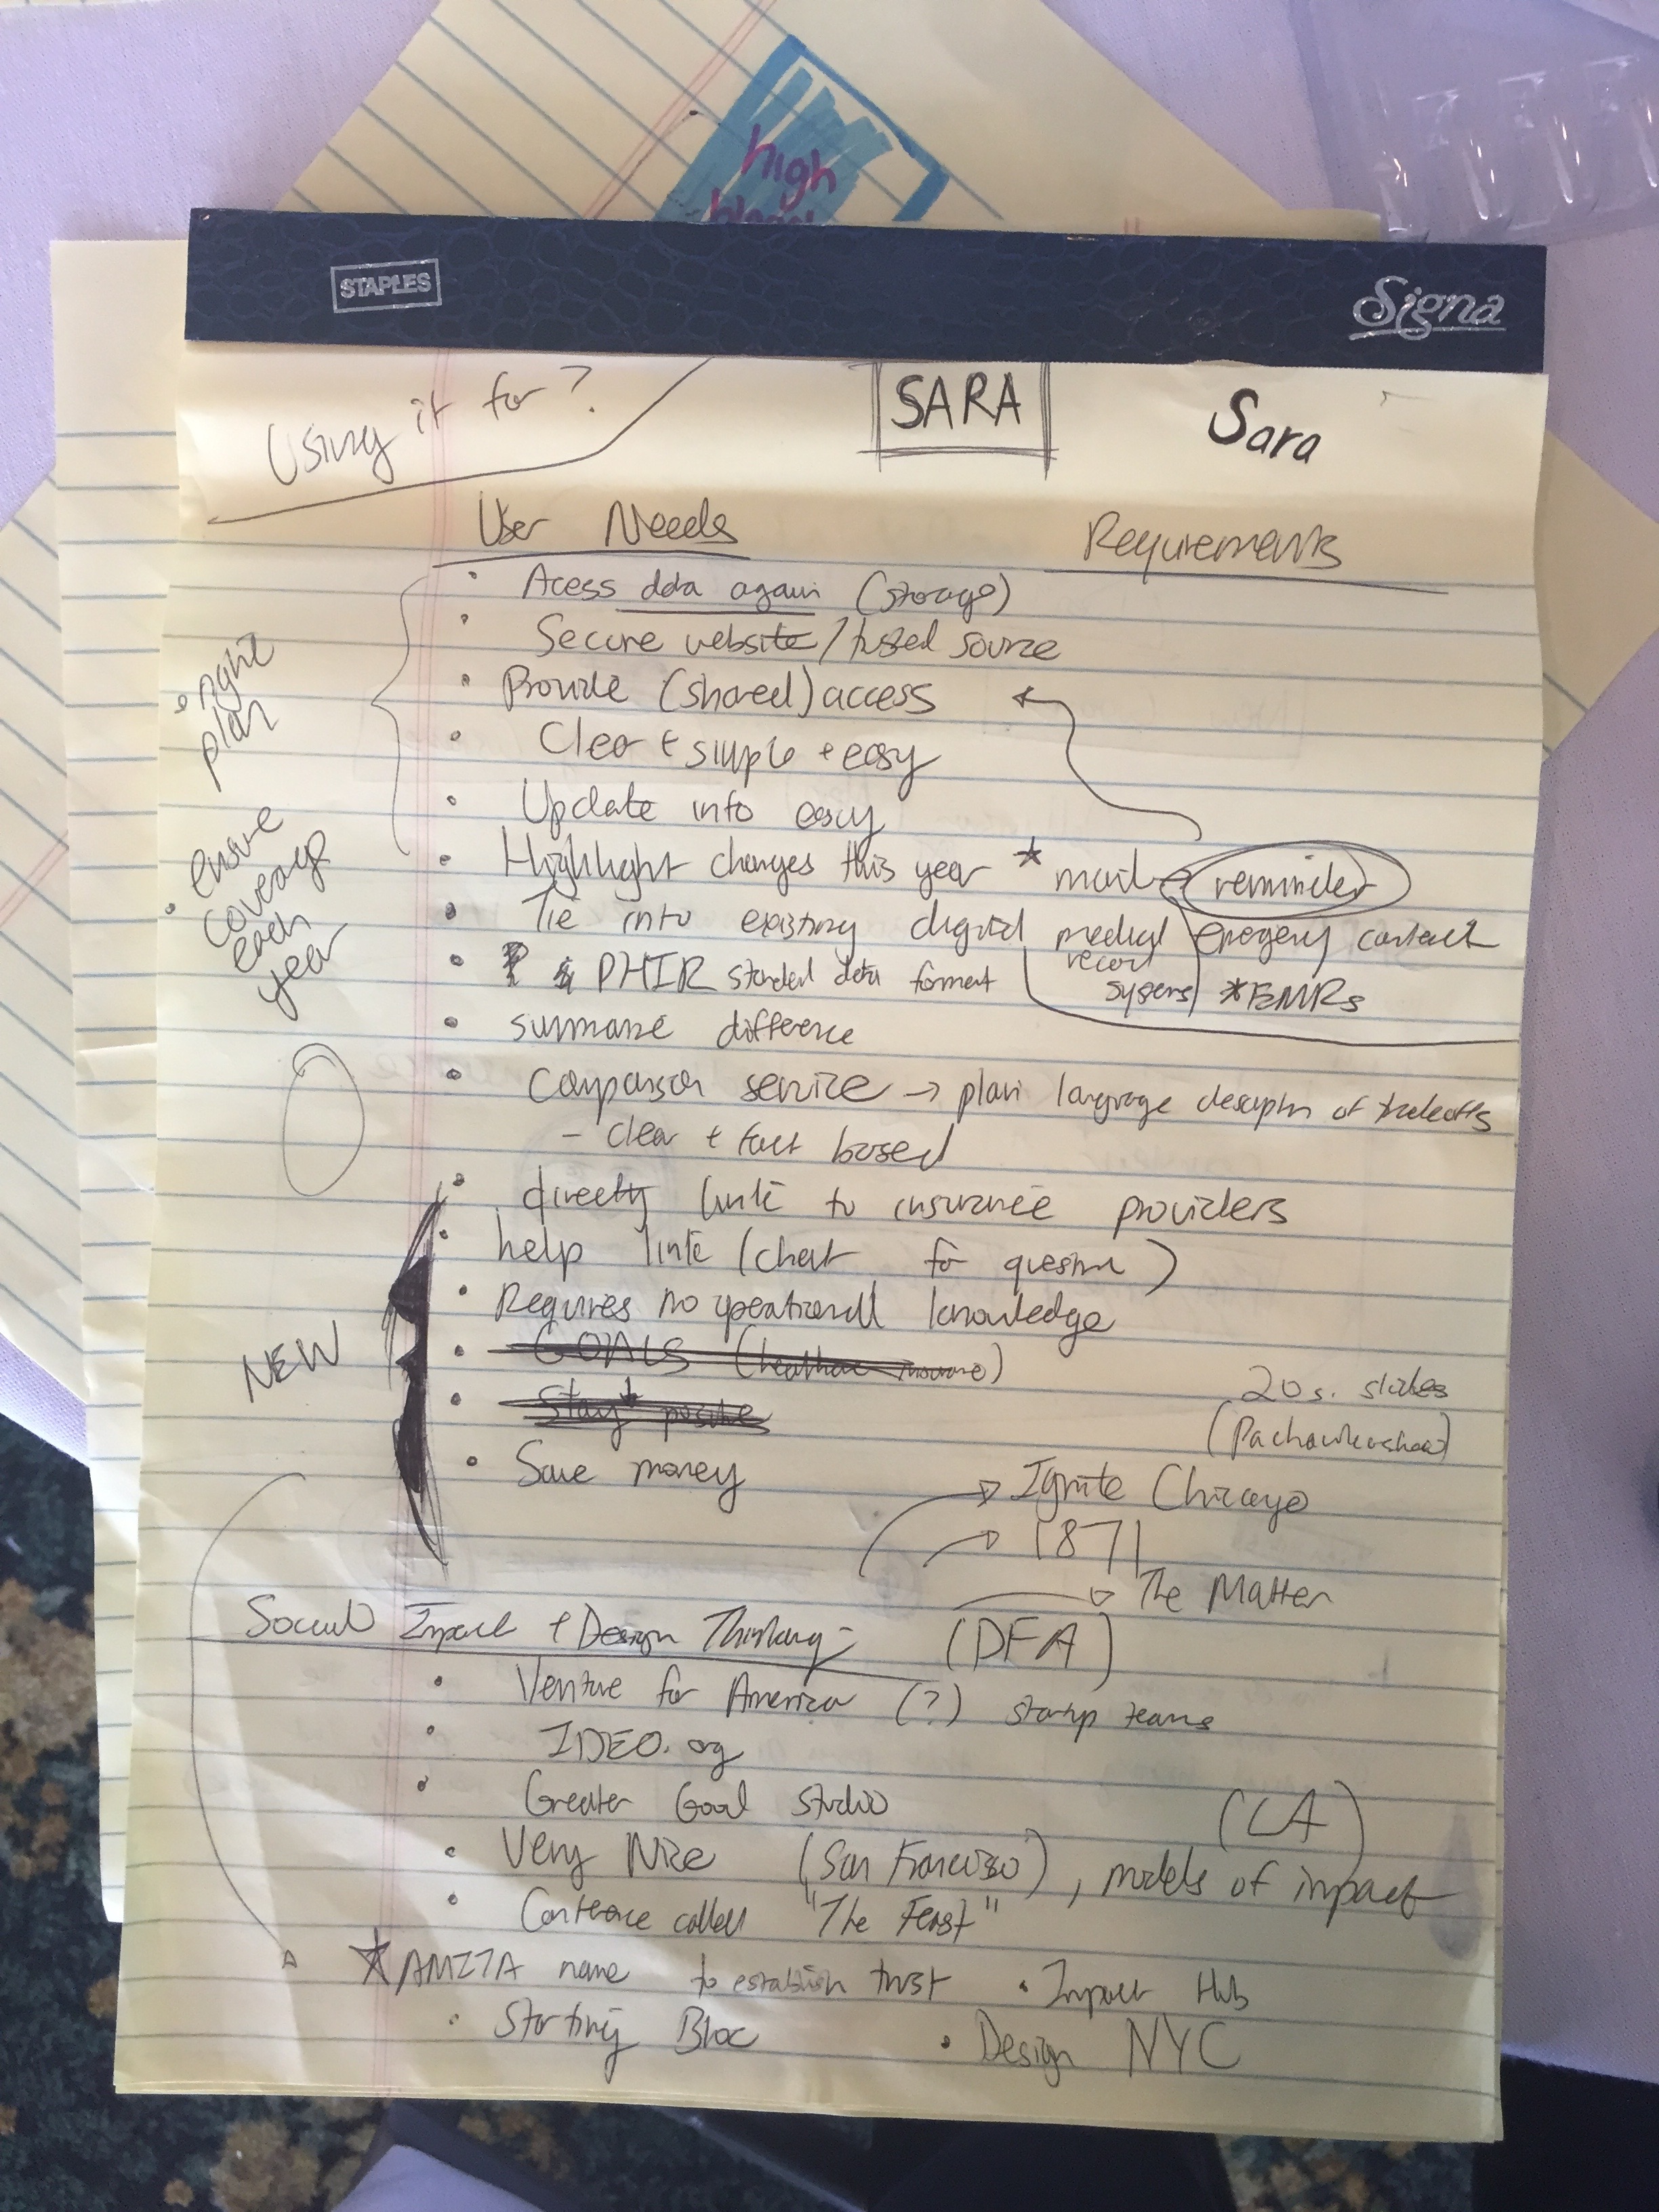 high
STAPLES
Signa
Using it for?
SARA
Sara
User Needs
Requirements
Acess data again (storage)
Secure website / trusted source
Provide (shared) access
Clear + simple + easy
Update info easy
Highlight changes this year * mail reminder
Tie into existing digital medical record systems
emergency contact
*EMRs
PHIR standard data format
summarize difference
Comparison service → plain language description of tradeoffs
- clear + fact based
directly link to insurance providers
help link (chat for question)
Requires no operational knowledge
GOALS (healthcare insurance)
Stay positive
Save money
right plan
ensure coverage each year
NEW
20 s. slides
Ignite Chicago
1871
The Matter
Social Impact + Design Thinking -
(DFA)
Venture for America (?) startup teams
IDEO.org
Greater Good Studio
(LA)
Very Nice (San Francisco), models of impact
Conference called "The Feast"
name to establish trust
Impact Hub
Starting Bloc
Design NYC